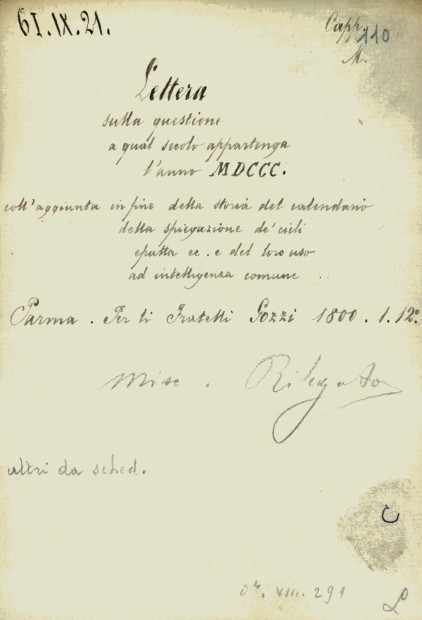 61.IX.21.
Capp. 110
M.
Lettera
sulla questione
a qual secolo appartenga
l'anno MDCCC.
coll'aggiunta in fine della storia del calendario
della spiegazione de' cicli
epatta ec. e del loro uso
ad intelligenza comune ..
Parma. Per li Fratelli Gozzi 1800. 1.12°.
Misc. Rilegato
altri da sched.
VIII. 291